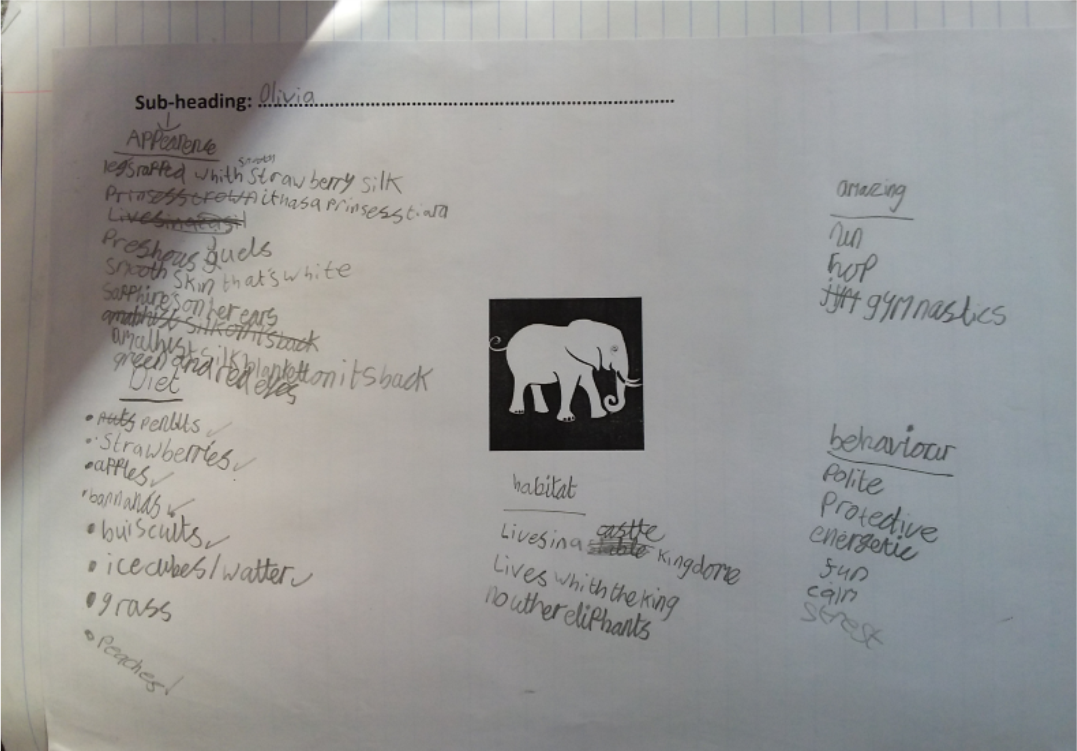 Sub-heading: Olivia
APPearence
legsrapped whith smooth strawberry silk
Prinsesscrown ithasa prinsesstiara
Livesinacasil
Preshous juels
smooth skin that's white
sapphiresonherears
amathist silkonitsback
amathist silk blankettonitsback
green and red eyes
Diet
• nuts penuts
• strawberries
• apples
• bannands
• buiscults
• icecubes/watter
• grass
• Peaches
habitat
Livesina castle stable kingdome
Lives whith the king
no uther eliphants
amazing
run
hop
gymnastics
behaviour
Polite
Protedive
energetic
fun
calm
strest